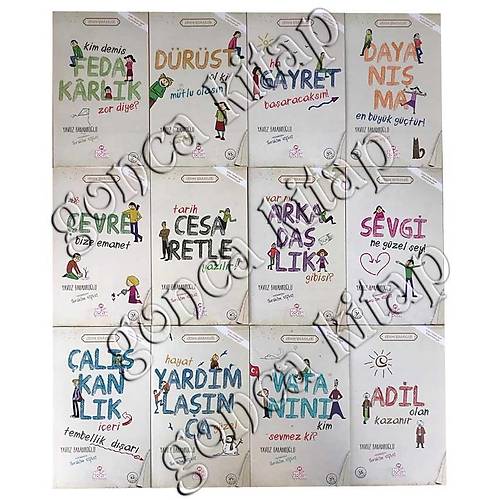 kim demiş
FEDA
KÂRLIK
zor diye?
YAVUZ BAHADIROĞLU
DÜRÜST
ol ki
mutlu olasın
YAVUZ BAHADIROĞLU
ha
GAYRET
başaracaksın!
YAVUZ BAHADIROĞLU
DAYA
NIŞ
MA
en büyük güçtür!
YAVUZ BAHADIROĞLU
ÇEVRE
bize emanet
YAVUZ BAHADIROĞLU
tarih
CESA
RETLE
yazılır!
YAVUZ BAHADIROĞLU
var mı
ARKA
DAŞ
LIK
gibisi?
YAVUZ BAHADIROĞLU
SEVGİ
ne güzel şey!
YAVUZ BAHADIROĞLU
ÇALIŞ
KAN
LIK
içeri
tembellik dışarı
YAVUZ BAHADIROĞLU
hayat
YARDIM
LAŞIN
CA
YAVUZ BAHADIROĞLU
VATA
NINI
kim
sevmez ki?
YAVUZ BAHADIROĞLU
ADİL
olan
kazanır
YAVUZ BAHADIROĞLU
gonca kitap
gonca kitap
gonca kitap
gonca kitap